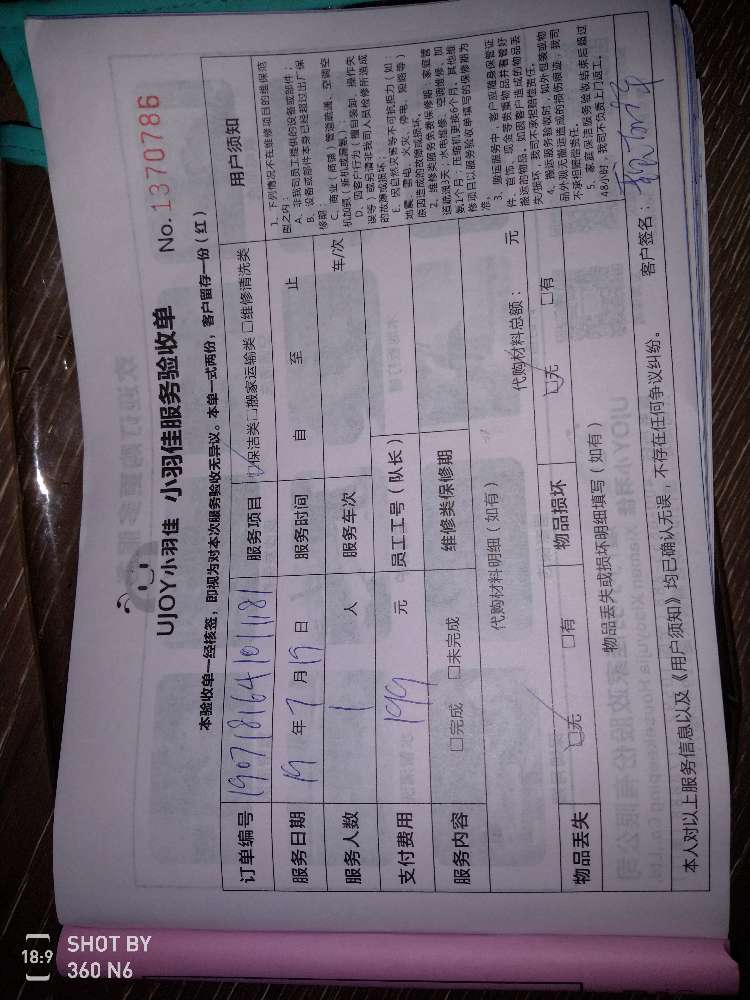 UJOY小羽佳 小羽佳服务验收单
No. 1370786
本验收单一经核签，即视为对本次服务验收无异议。本单一式两份，客户留存一份（红）
订单编号 服务项目 ☑保洁类□搬家运输类 □维修清洗类 用户须知
服务日期 19 年 7 月 19 日 服务时间 自 至 止
服务人数 1 人 服务车次 车/次
支付费用 199 元 员工工号（队长）
服务内容 □完成 □未完成 维修类保修期
1、下列情况不在维修项目的维保范围之内：
A、非我司员工提供的设备或部件；
B、设备或部件本身已经超过出厂保修期；
C、商业（商铺）管道疏通、空调空机加氨（新机或漏氨）；
D、因客户行为（擅自装卸、操作失误等）或另请非我司人员检修所造成的故障或损坏；
E、因自然灾害等不可抗拒力（如：地震、雷电、火灾、停电、短路等）原因造成的故障或损坏。
2、维修类服务免费保修期：家庭管道疏通3天；水电维修、空调维修、加氨1个月；压缩机更换6个月，其他维修项目以服务验收单填写的保修期为准。
3、搬运服务中，客户应随身保管证件、首饰、现金等贵重物品并看管好搬运的物品，如因客户造成的物品丢失/损坏，我司不承担赔偿责任。
4、搬运服务验收时，如外包装或物品外观无搬运造成的损伤痕迹，我司不承担赔偿责任。
5、家庭保洁服务验收结束后超过48小时，我司不负责上门返工。
代购材料明细（如有） 代购材料总额： 元
物品丢失 ☑无 □有 物品损坏 ☑无 □有
物品丢失或损坏明细填写（如有）
本人对以上服务信息以及《用户须知》均已确认无误，不存在任何争议纠纷。 客户签名：
18:9 SHOT BY
360 N6